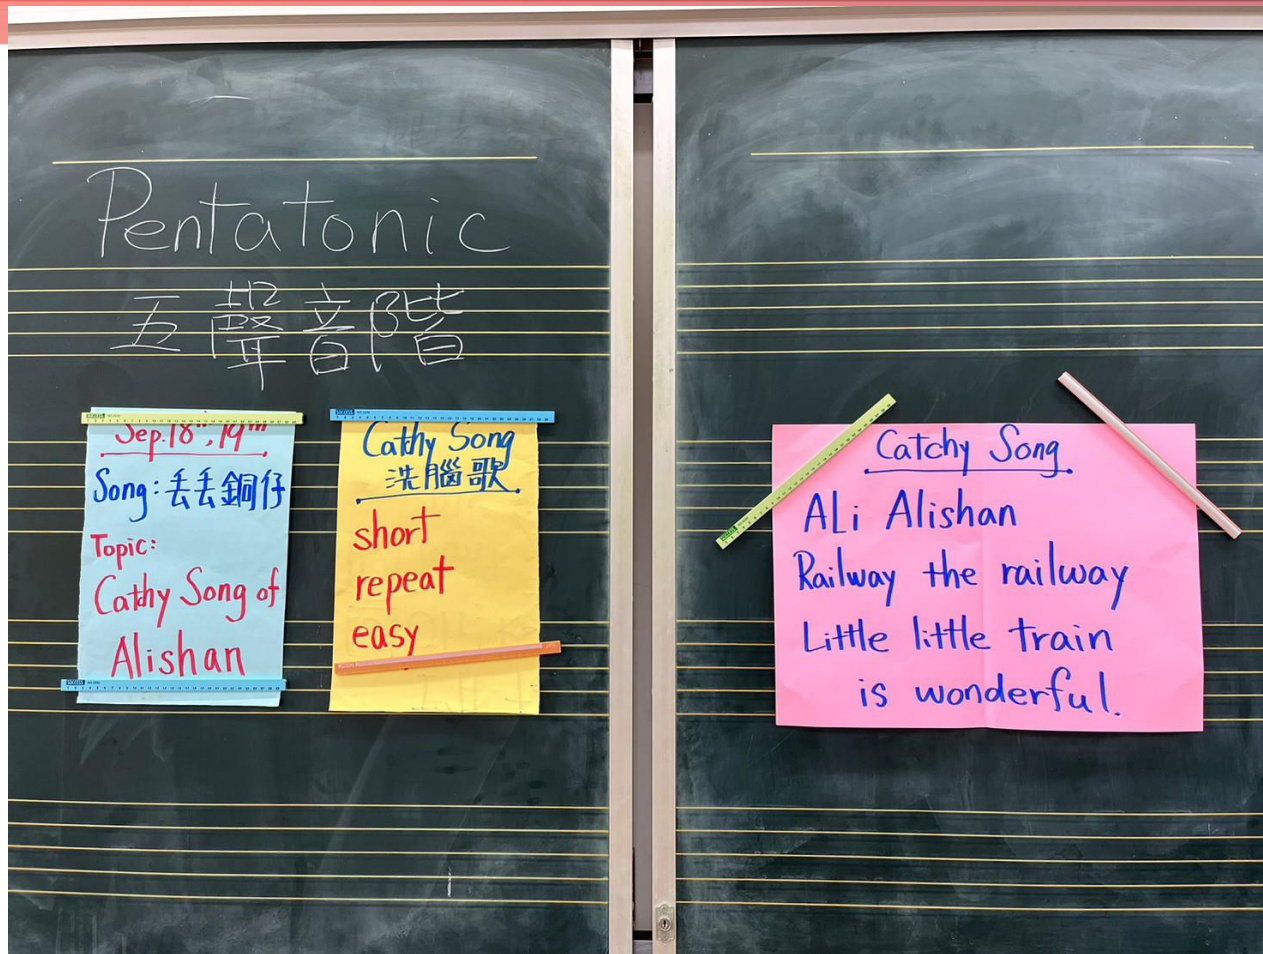 Pentatonic
五聲音階
Sep. 18th, 19th
Song: 丟丟銅仔
Topic:
Cathy Song of
Alishan
Cathy Song
洗腦歌
short
repeat
easy
Catchy Song
ALi Alishan
Railway the railway
Little little train
is wonderful.